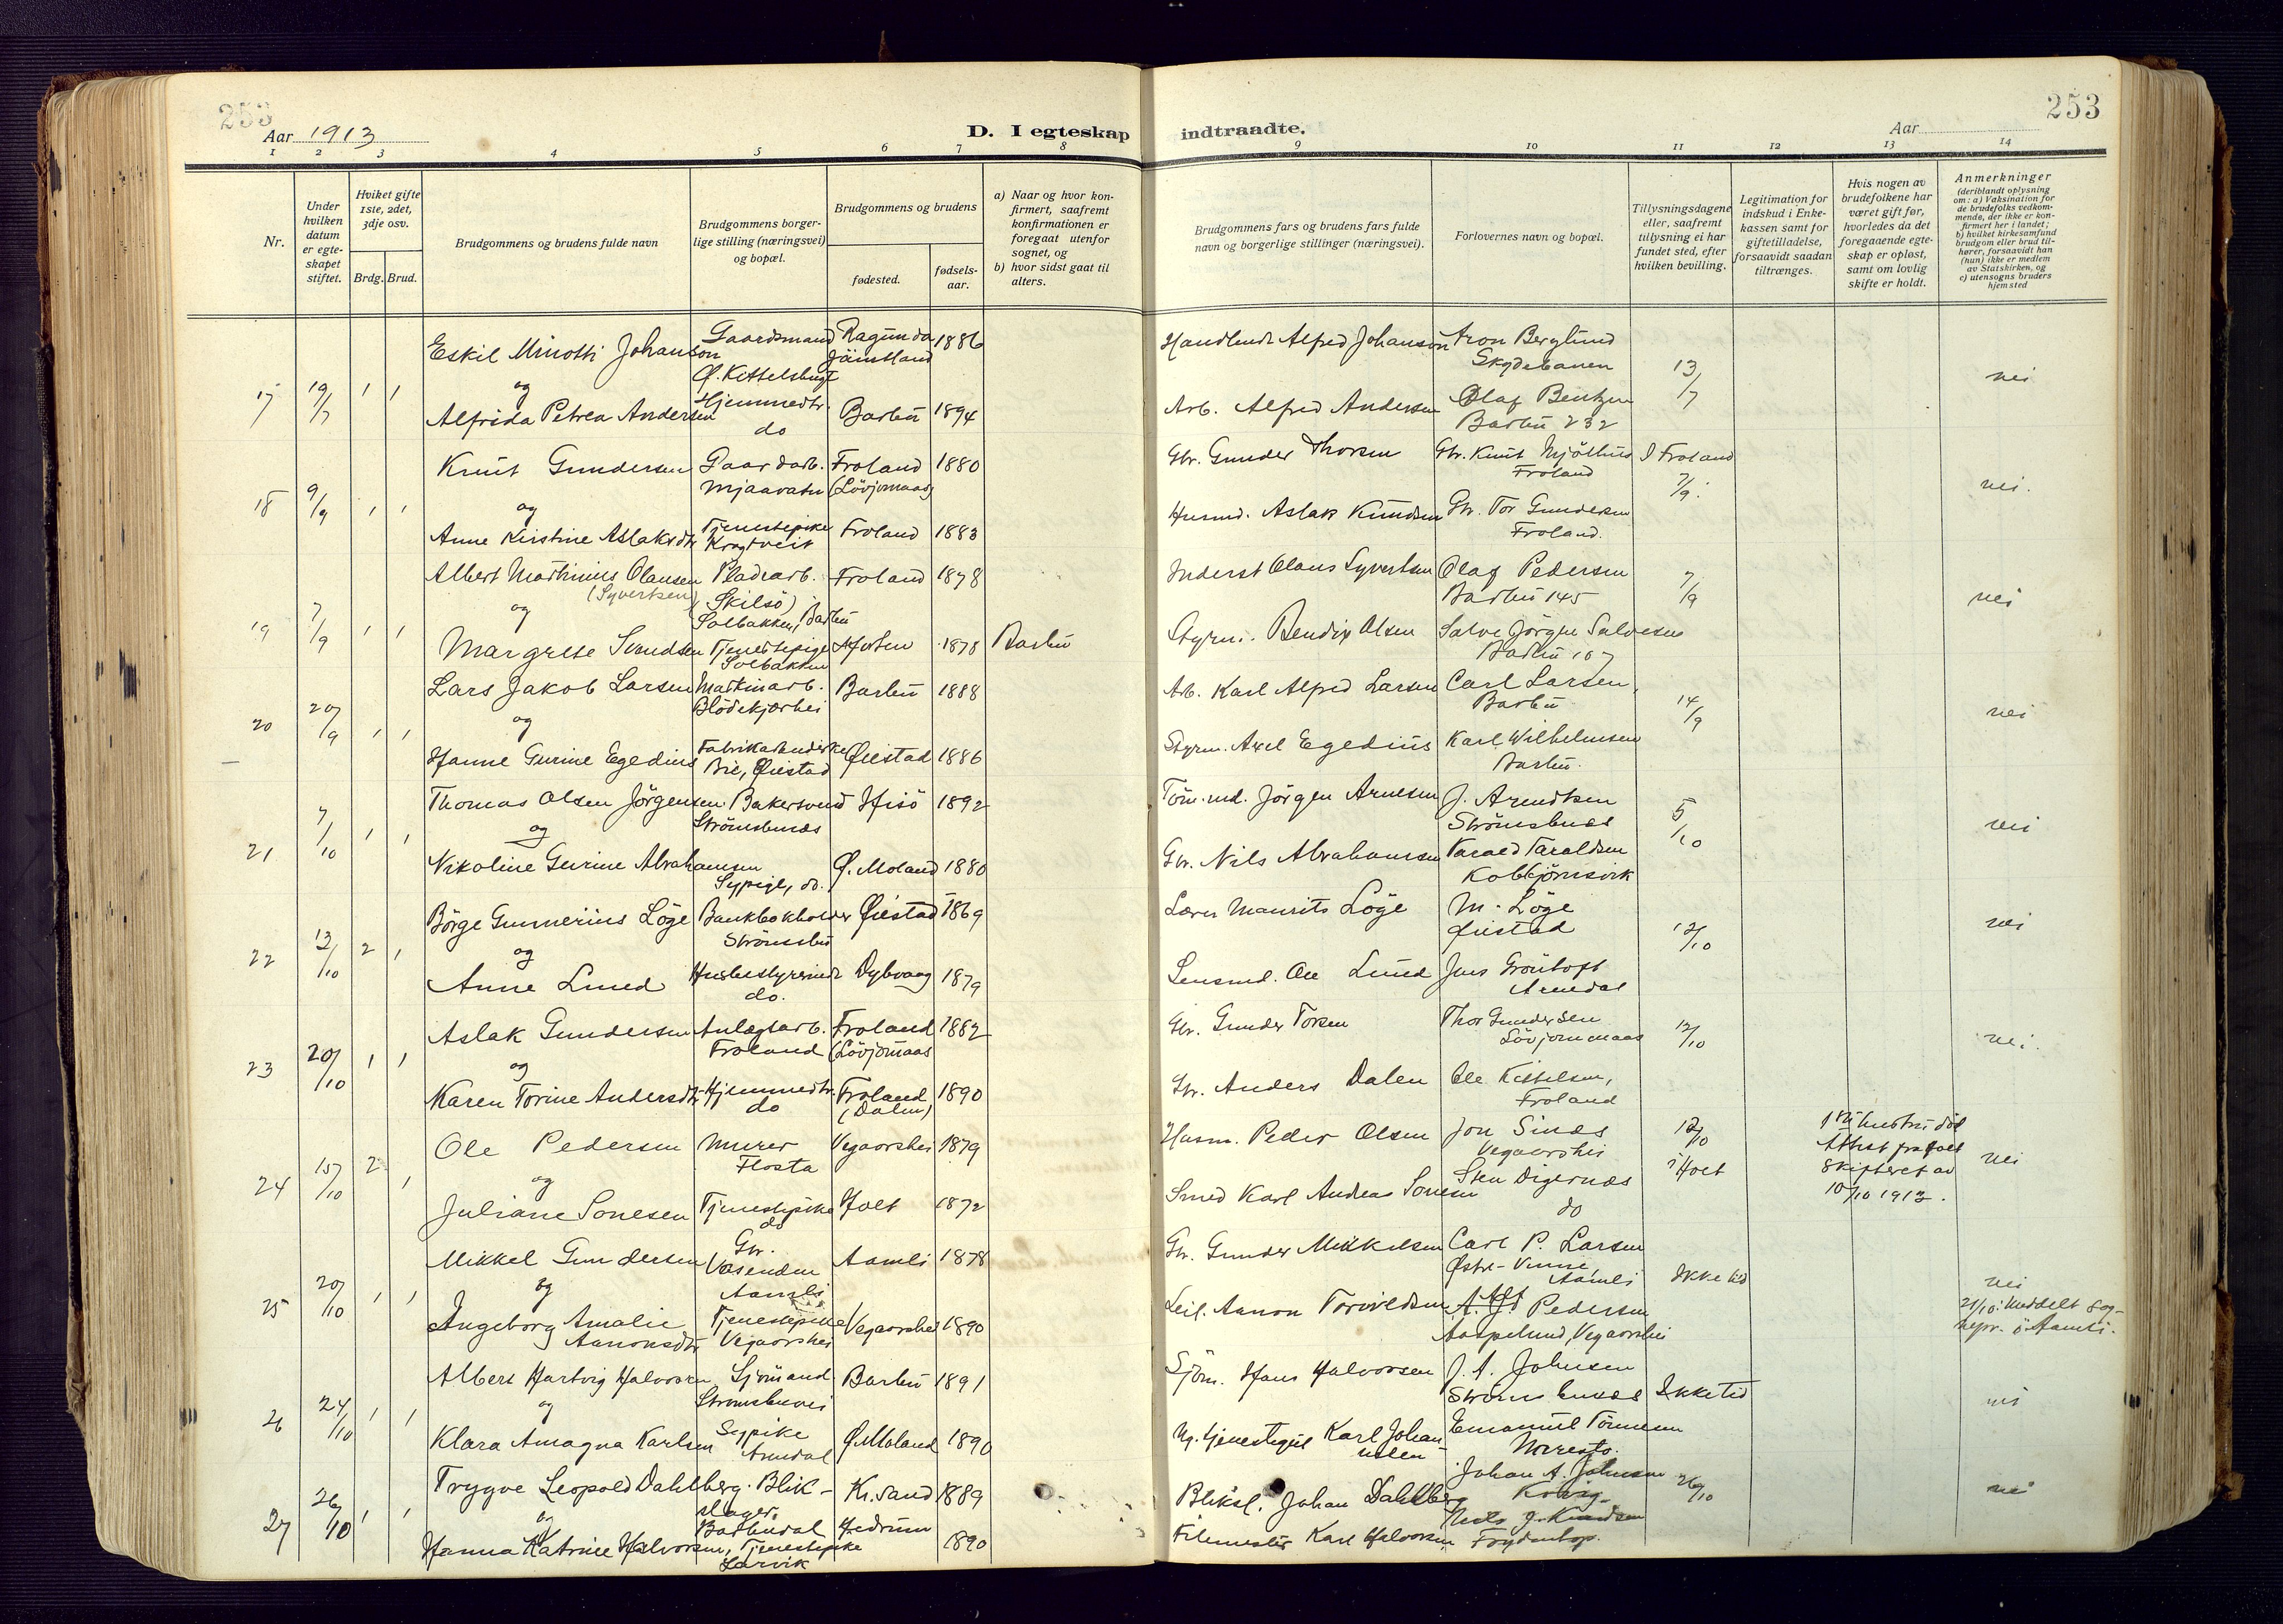 253
Aar 1913
D. I egteskap
indtraadte.
Aar
253
1 2 3 4 5 6 7 8 9 10 11 12 13 14
Nr.
Under hvilken datum er egteskapet stiftet.
Hviket gifte 1ste, 2det, 3dje osv.
Brdg. Brud.
Brudgommens og brudens fulde navn
Brudgommens borgerlige stilling (næringsvei) og bopæl.
Brudgommens og brudens
fødested.
fødselsaar.
a) Naar og hvor konfirmert, saafremt konfirmationen er foregaat utenfor sognet, og
b) hvor sidst gaat til alters.
Brudgommens fars og brudens fars fulde navn og borgerlige stillinger (næringsvei).
Forlovernes navn og bopæl.
Tillysningsdagene eller, saafremt tillysning ei har fundet sted, efter hvilken bevilling.
Legitimation for indskud i Enkekassen samt for giftetilladelse, forsaavidt saadan tiltrænges.
Hvis nogen av brudefolkene har været gift før, hvorledes da det foregaaende egteskap er opløst, samt om lovlig skifte er holdt.
Anmerkninger
(deriblandt oplysning om: a) Vaksination for de brudefolks vedkommende, der ikke er konfirmert her i landet; b) hvilket kirkesamfund brudgom eller brud tilhører, forsaavidt han (hun) ikke er medlem av Statskirken, og c) utensogns bruders hjemsted
17 19/7 1 1
Eskil Minotti Johanson Gaardmand Ø. Kittelsbugt Ragunda Jämtland 1886
Handlende Alfred Johanson Aron Berglund Skydebanen 13/7 nei
og
Alfrida Petrea Andersen Hjemmedtr. do Barbu 1894
Arb. Alfred Andersen Olaf Bentzen Barbu 232
18 9/9 1 1
Knut Gundersen Gaardarb. Mjaavatn Froland (Lövjomaas) 1880
Gbr. Gunder Thorsen Gbr. Knut Mjölhus Froland I Froland 7/9. nei.
og
Anne Kirstine Aslaksdtr Tjenestepike Kragtveit Froland 1883
Husmd. Aslak Knudsen Gbr. Tor Gundersen Froland.
19 7/9 1 1
Albert Martinius Olausen (Syvertsen) Pladsarb. (Skilsö) Solbakken, Barbu Froland 1878
Inderst Olaus Syvertsen Olaf Pedersen Barbu 145 7/9 nei
og
Margrete Svendsen Tjenestepige Solbakken 1878 Barbu
Styrm. Bendix Olsen Salve Jörgen Salvesen Barbu 107
20 20/9 1 1
Lars Jakob Larsen Maskinarb. Blödekjærhei Barbu 1888
Arb. Karl Alfred Larsen Carl Larsen, Barbu 14/9 nei
og
Hanne Gurine Egedius Fabrikarbeiderske Bie, Øiestad Øiestad 1886
Styrm. Axel Egedius Karl Wilhelmsen Barbu.
21 7/10 1 1
Thomas Olsen Jörgensen Bakersvend Strömsbunæs Hisö 1892
Töm.md. Jörgen Arnesen J. Arendtsen Strömsbunes 5/10 nei
og
Nikoline Gurine Abrahamsen Sypige, do. Ø. Moland 1880
Gbr. Nils Abrahamsen Tarald Taraldsen Kolbjörnsvik
22 13/10 2 1
Börge Gunnerius Löge Bankbokholder Strömsbu Øiestad 1869
Lærer Maurits Löge M. Löge Øiestad 12/10 nei
og
Anne Lund Husbestyrerinde do. Dybvaag 1879
Lensmd. Ole Lund Jens Gröntoft Arendal
23 20/10 1 1
Aslak Gundersen Anlægsarb. Froland Froland (Lövjomaas 1882
Gbr. Gunder Torsen Thor Gundersen Lövjommaas 12/10 nei.
og
Karen Torine Andersdtr Hjemmedtr. do Froland (Dalen) 1890
Gbr. Anders Dalen Ole Kittelsen, Froland
24 15/10 2 1
Ole Pedersen Murer Flosta Vegaarshei 1879
Husm. Peder Olsen Jon Sines Vegaarshei 12/10 i Holt 1ste hustru död Attest fra Holt Skifteret av 10/10 1913. nei
og
Juliane Sonesen Tjenestepike do Holt 1872
Smed Karl Andreas Sonesen Sten Digernæs do
25 20/10 1 1
Mikkel Gundersen Gbr. Vasenden Aamli Aamli 1878
Gbr. Gunder Mikkelsen Carl P. Larsen Østre-Vimme Aamli Ikke tid nei
og
Ingeborg Amalie Aanonsdtr Tjenestepike Vegaarshei Vegaarshei 1890
Leil. Aanon Torvildsen Pedersen Aaspelund, Vegaarshei
21/10: Meddelt sognepr. i Aamli.
26 24/10 1 1
Albert Hartvig Halvorsen Sjömand Strömsbuvei Barbu 1891
Sjöm. Hans Halvorsen J. A. Johnsen Strömsbunæs Ikke tid nei
og
Klara Amagna Karlsen Sypike Arendal Ø. Moland 1890
Karl Johan Emanuel Tönnesen
27 26/10 1 1
Trygve Leopold Dahlberg Blikslager, Barbudal Kr.sand 1889
Bliksl. Johan Dahlberg Johan A. Johnsen 26/10 nei
og
Hanna Katrine Halvorsen, Tjenestepike Larvik Hedrum 1890
Filemester Karl Halvorsen Nils J. Knudsen